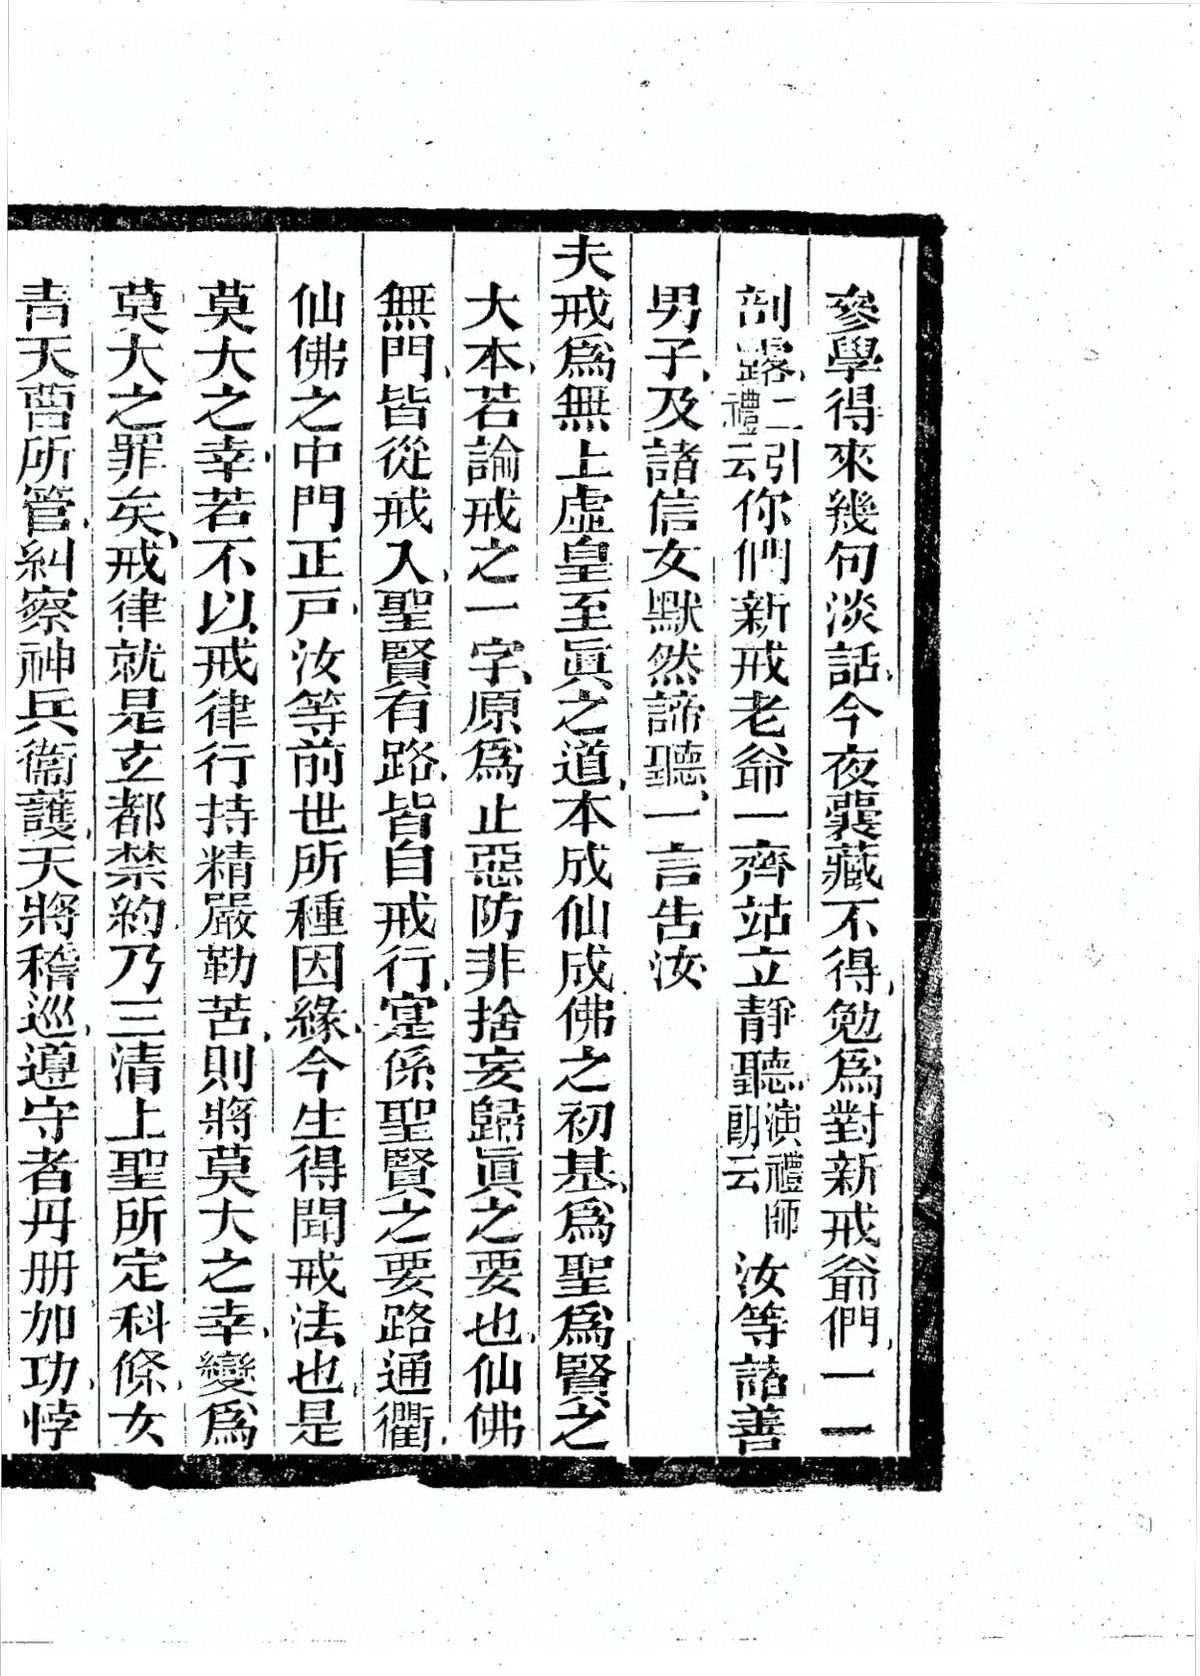 參學得來幾句淡話、今夜囊藏不得、勉爲對新戒爺們、一一
剖露、二引禮云你們新戒老爺一齊站立靜聽、演禮師朗云汝等諸善
男子、及諸信女默然諦聽、一言告汝
夫戒爲無上虛皇至眞之道、本成仙成佛之初基、爲聖爲賢之
大本、若論戒之一字、原爲止惡防非捨妄歸眞之要也、仙佛
無門、皆從戒入、聖賢有路、皆自戒行、寔係聖賢之要路通衢、
仙佛之中門正戶、汝等前世所種因緣、今生得聞戒法也、是
莫大之幸、若不以戒律行持精嚴勤苦、則將莫大之幸、變爲
莫大之罪矣、戒律就是玄都禁約、乃三清上聖所定科條、女
青天曹所管、糾察神兵衞護、天將稽巡、遵守者丹册加功、悖